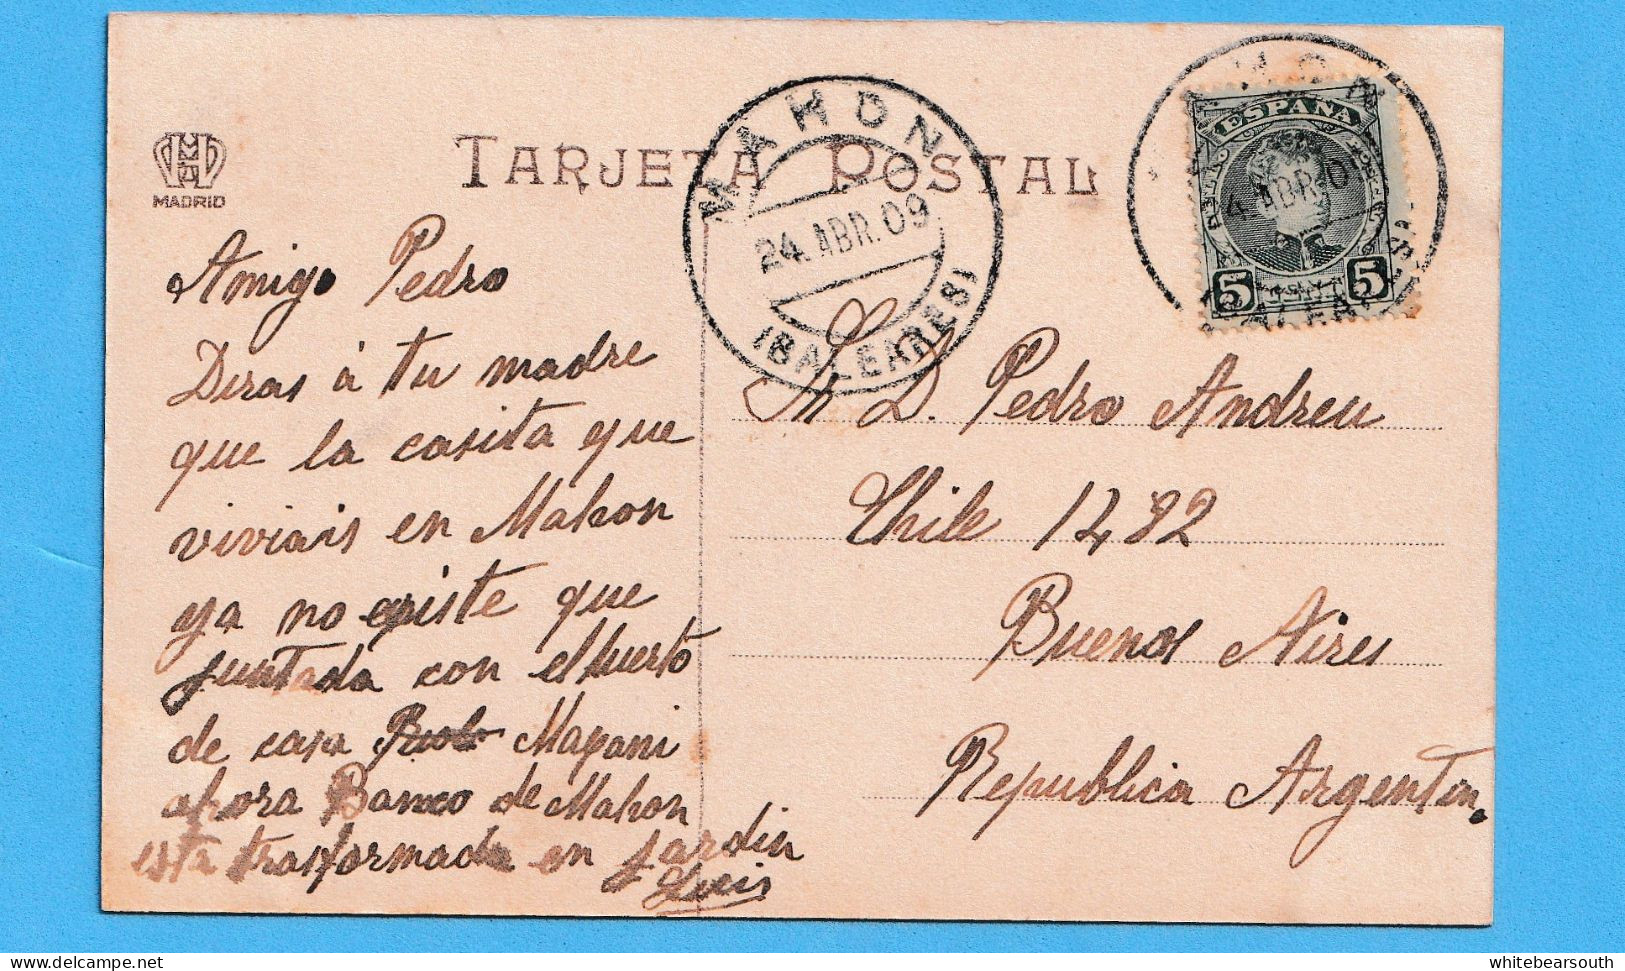 TARJETA POSTAL
HM
MADRID
MAHON
24 ABR. 09
(BALEARES)
ESPAÑA
4 ABR. 0
5 5
Amigo Pedro
Diras á tu madre
que la casita que
viviais en Mahon
ya no existe que
juntada con el huerto
de casa Mapani
ahora Banco de Mahon
esta trasformada en jardin
Luis
Sr. D. Pedro Andreu
Chile 1482
Buenos Aires
Republica Argentina.
whitebearsouth